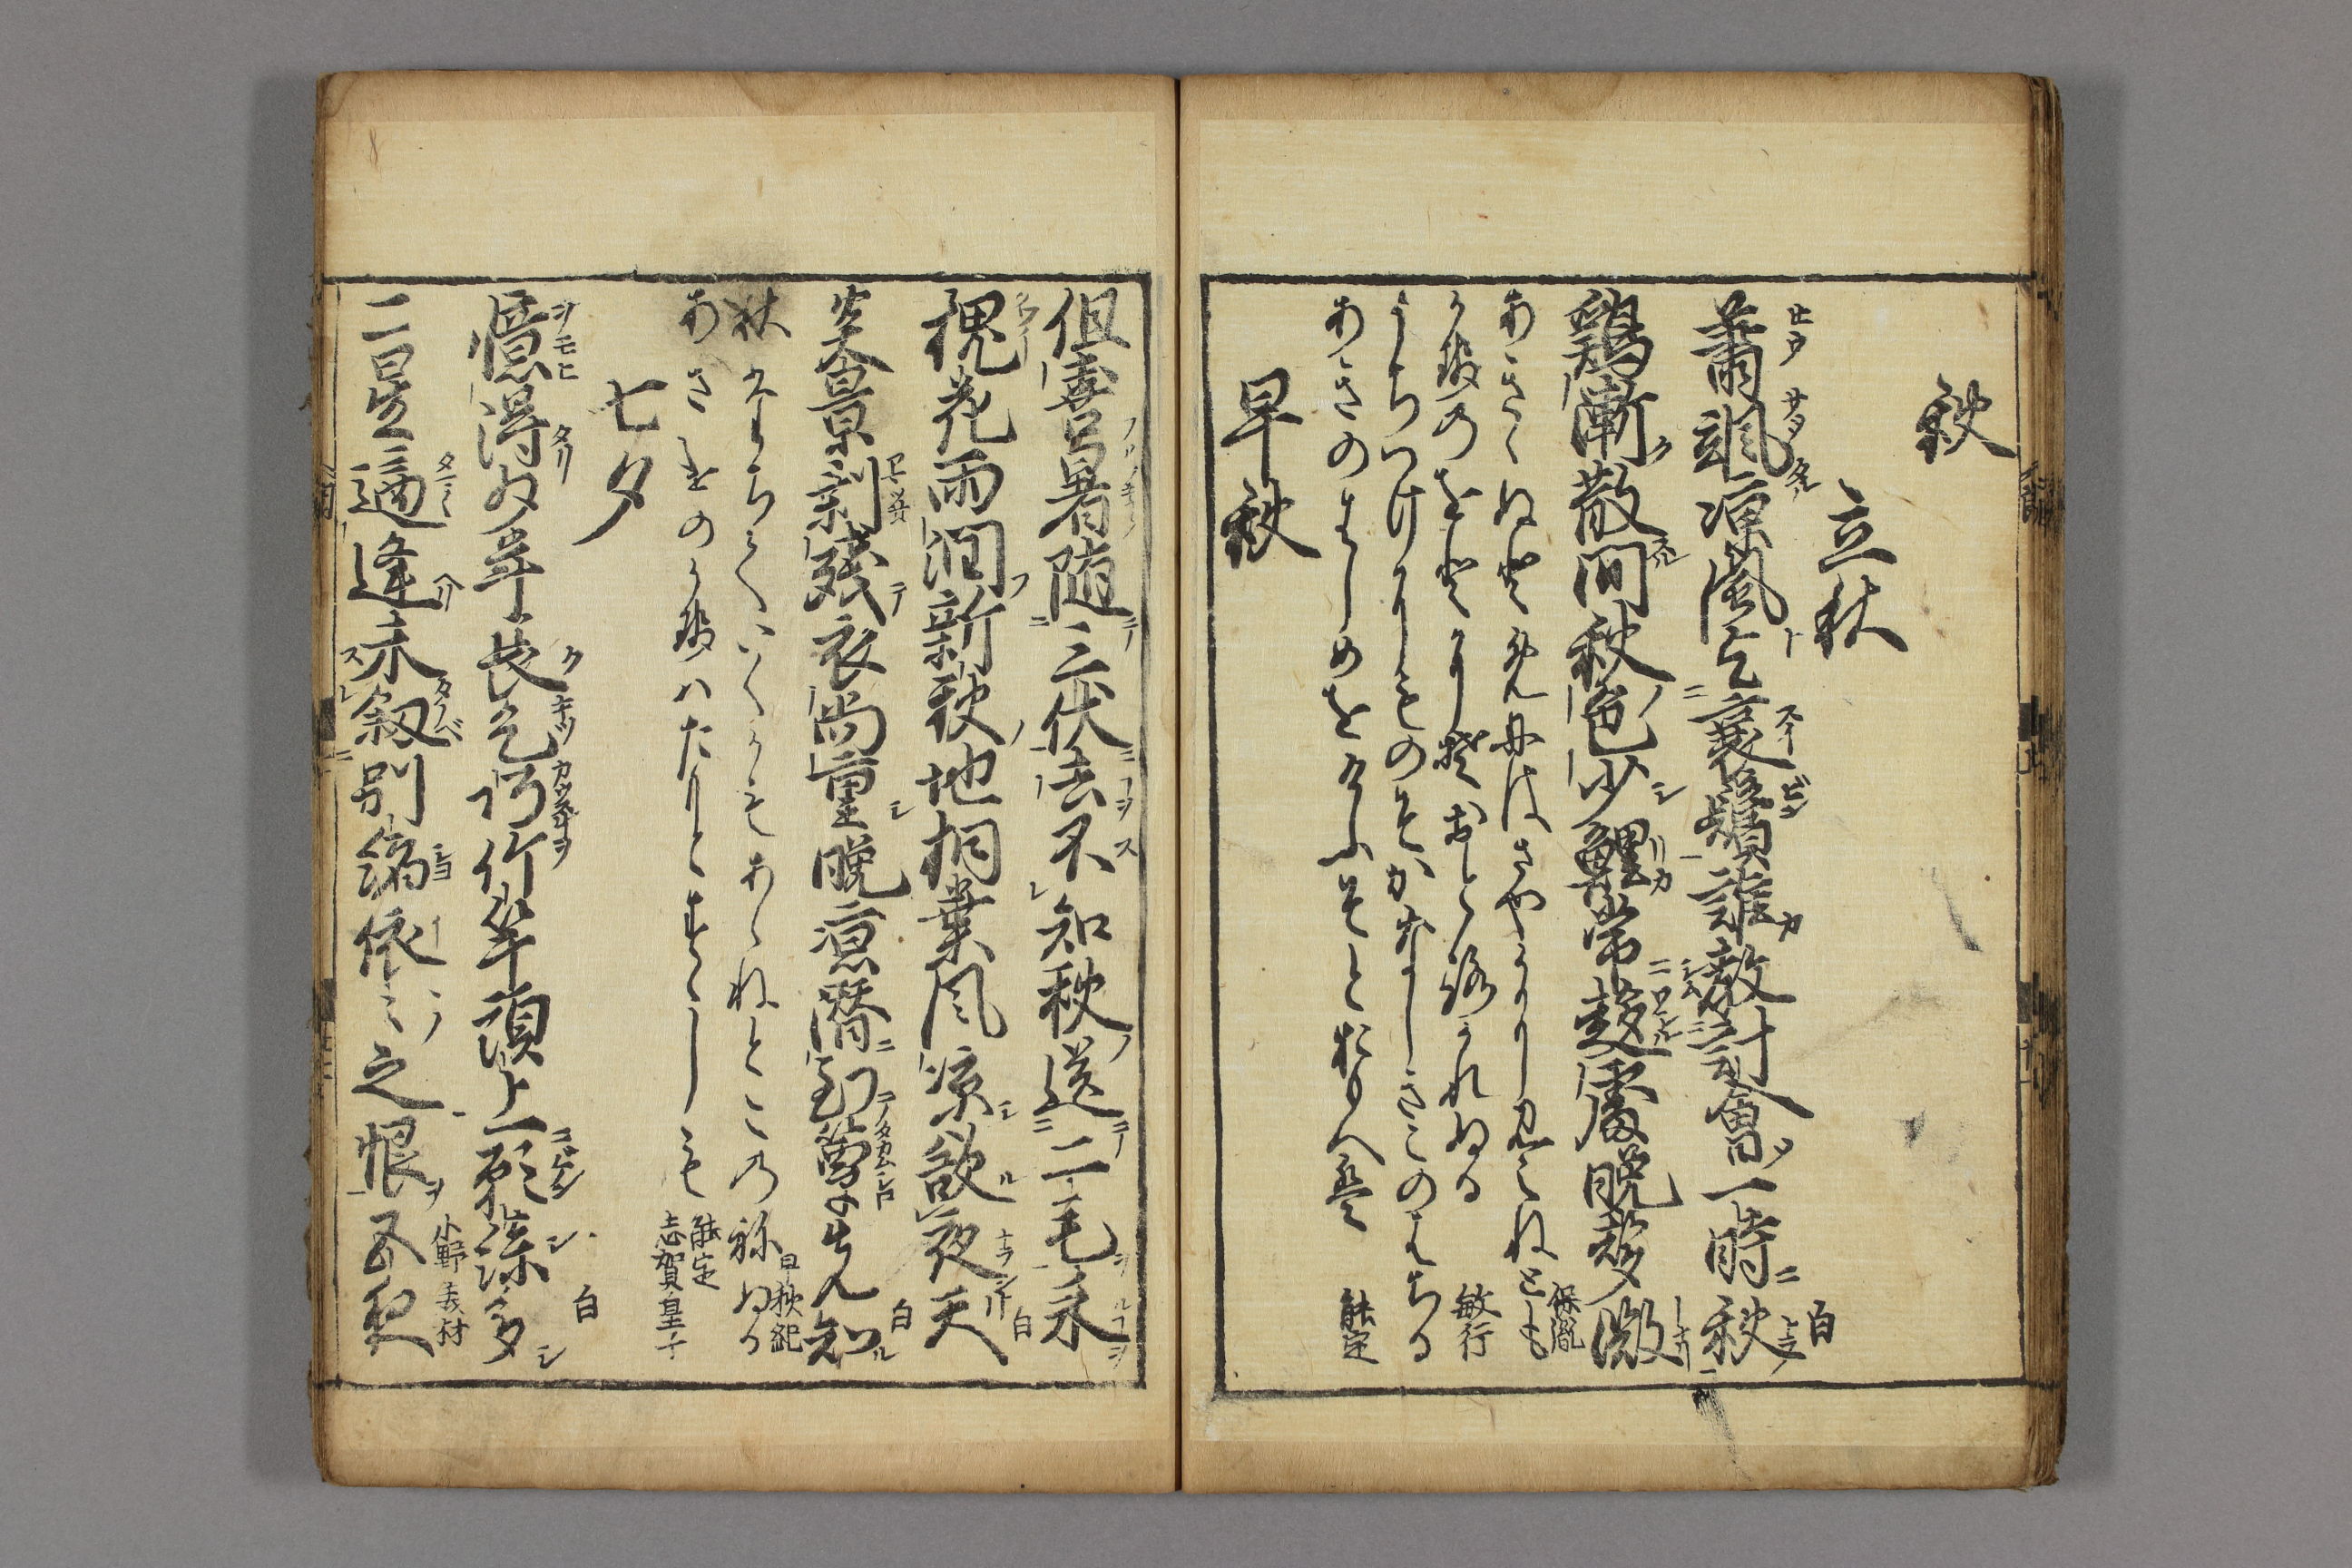 秋
立秋
蕭颯凉風与衰鬢誰教計會一時秋 白
鶏漸散間秋色少鯉常趍處晩聲微 保胤
あききぬとめにはさやかにみえねとも
かせのをとにそおとろかれぬる 敏行
うちつけにものそかなしきこのはちる
あきのはしめをけふそとおもへは 能定
早秋
但喜暑随三伏去不知秋送二毛来
槐花雨潤新秋地桐葉風凉欲夜天 白
炎景剰残衣尚重晩凉潜到簟先知 白
秋たちていくかもあらねとこのねぬる 早秋
あさけのかせはたもとすゝしも 志賀皇子
七夕
憶得少年長乞巧竹竿頭上願糸多 白
二星適逢未叙別緒依〻之恨五更 小野美材